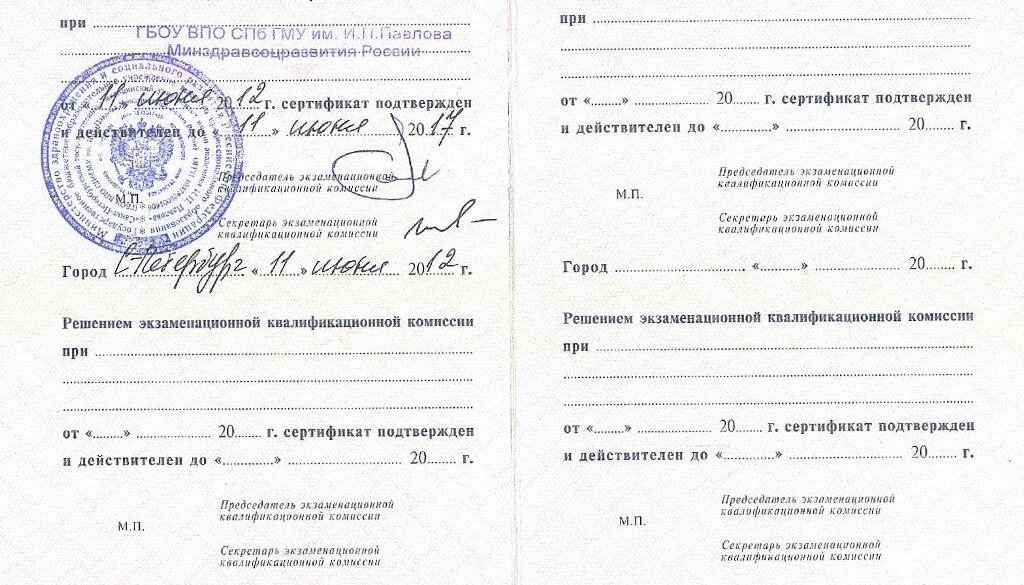 при
ГБОУ ВПО СПб ГМУ им. И.П.Павлова
Минздравсоцразвития России
от «11» июня 2012 г. сертификат подтвержден
и действителен до «11» июня 2017 г.
Председатель экзаменационной
квалификационной комиссии
М.П.
Секретарь экзаменационной
квалификационной комиссии
Город С-Петербург «11» июня 2012 г.
Решением экзаменационной квалификационной комиссии
при
от «........» 20....... г. сертификат подтвержден
и действителен до «.............» 20........ г.
Председатель экзаменационной
квалификационной комиссии
М.П.
Секретарь экзаменационной
квалификационной комиссии
при
от «........» 20....... г. сертификат подтвержден
и действителен до «.............» 20........ г.
Председатель экзаменационной
квалификационной комиссии
М.П.
Секретарь экзаменационной
квалификационной комиссии
Город «.........» 20........ г.
Решением экзаменационной квалификационной комиссии
при
от «........» 20....... г. сертификат подтвержден
и действителен до «.............» 20........ г.
Председатель экзаменационной
квалификационной комиссии
М.П.
Секретарь экзаменационной
квалификационной комиссии